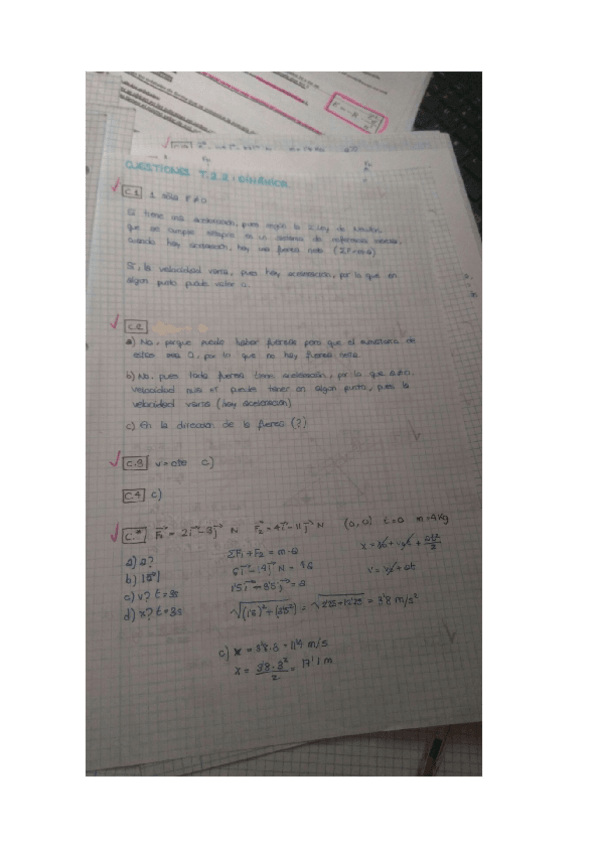 CUESTIONES T.2.2: DINÁMICA
C.1 1 sola F≠0
Sí tiene una aceleración, pues según la 2ª Ley de Newton,
que se cumple siempre en un sistema de referencia inercial,
cuando hay aceleración, hay una fuerza neta (ΣF=m·a)
Sí, la velocidad varía, pues hay aceleración, por lo que en
algún punto puede valer 0.
C.2
a) No, porque puede haber fuerzas pero que el sumatorio de
estas sea 0, por lo que no hay fuerza neta.
b) No, pues toda fuerza tiene aceleración, por lo que
velocidad nula sí puedes tener en algún punto, pues la
velocidad varía (hay aceleración)
c) En la dirección de la fuerza (?)
C.3 v=cte c)
C.4 c)
F₁ = 2i - 3j N F₂ = 4i - 11j N (0,0) t=0 m=4kg
a) a?
b) |a|
c) v? t=3s
d) x? t=3s
ΣF₁ + F₂ = m·a
6i - 14j N = 4a
1'5i - 3'5j = a
√(1'5)² + (3'5)² = √2'25+12'25 = 3'8 m/s²
v = v₀ + at
c) v = 3'8·3 = 11'4 m/s
x = 3'8·3²/2 = 17'1 m